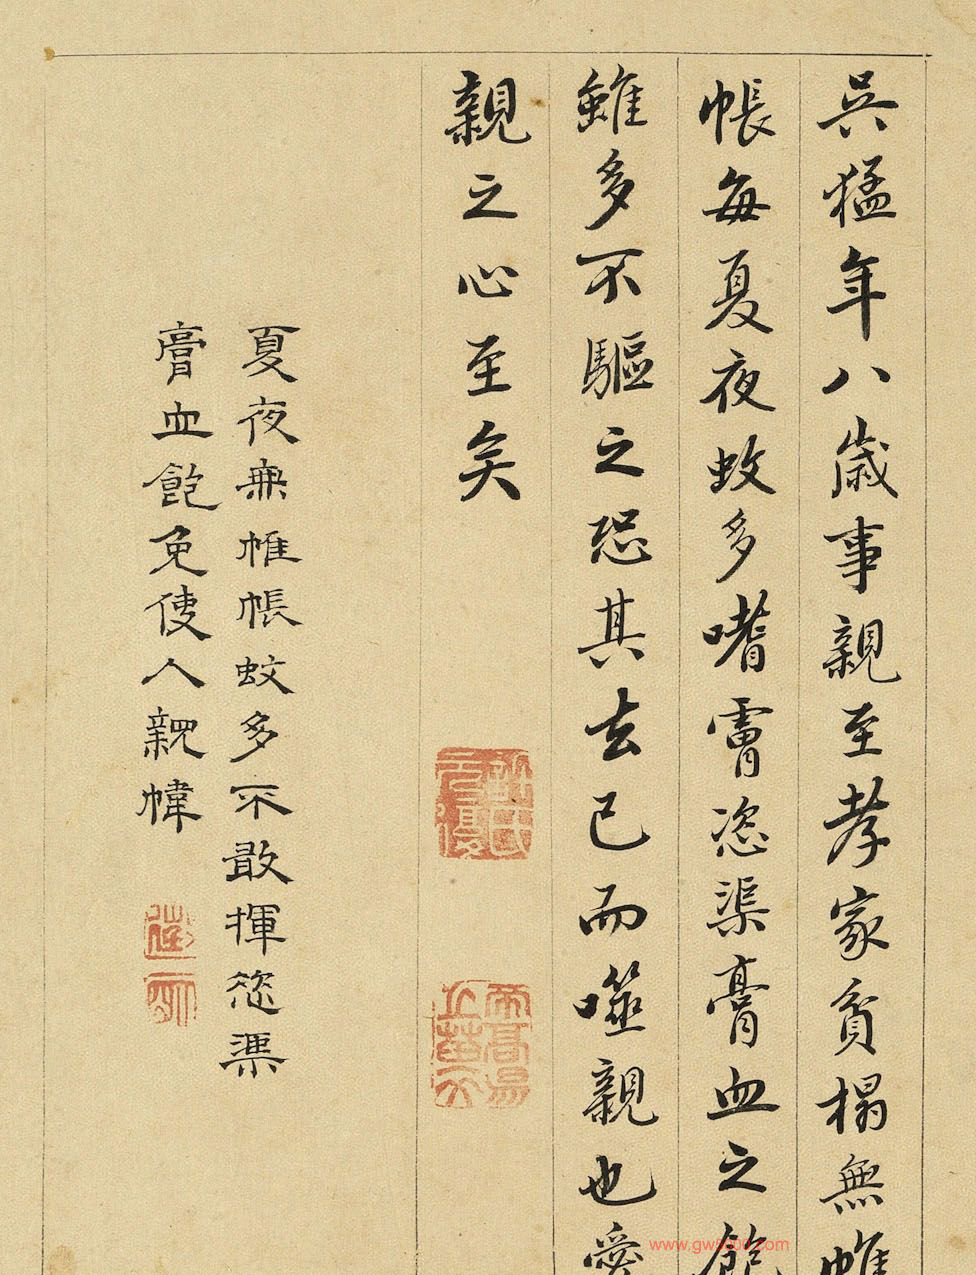 吳猛年八歲事親至孝家貧榻無帷
帳每夏夜蚊多嗜膚恣渠膏血之飽
雖多不驅之恐其去己而噬親也愛
親之心至矣
夏夜無帷帳蚊多不敢揮恣渠
膏血飽免使人親幃
www.gw5000.com